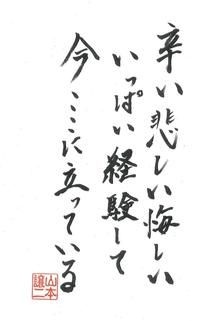 辛い悲しい悔しい
いっぱい経験して
今ここに立っている
山本
譲二